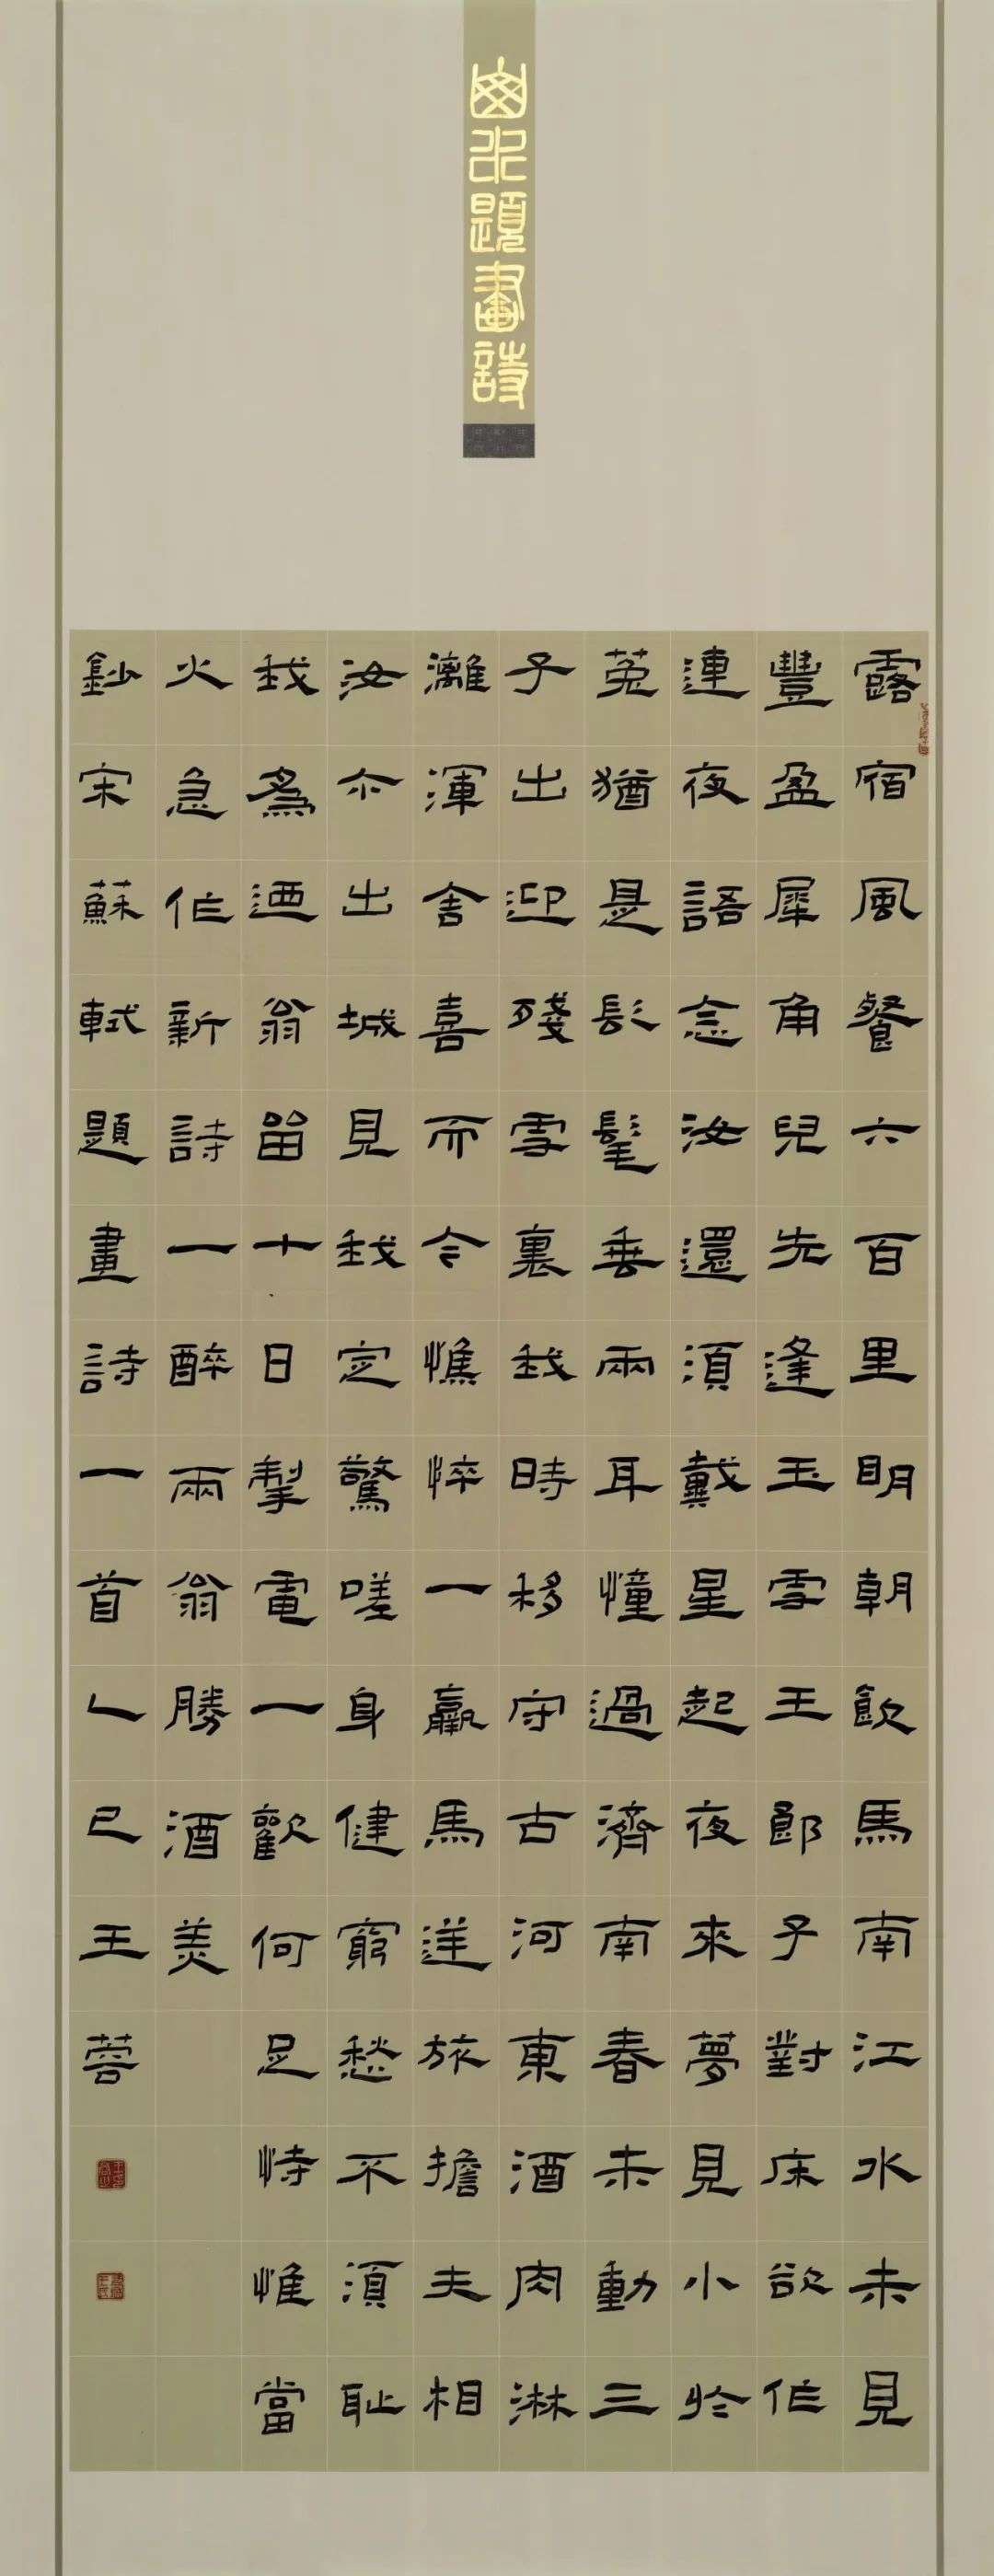 題畫詩
露宿風餐六百里明朝飲馬南江水未見
豐盈犀角兒先逢玉雪王郎子對床欲作
連夜語念汝還須戴星起夜來夢見小於
菟猶是髧髦垂兩耳憶過濟南春未動三
子出迎殘雪裏我時移守古河東酒肉淋
漓渾舍喜而今憔悴一羸馬逆旅擔夫相
汝尒出城見我定驚嗟身健窮愁不須恥
我為迺翁畱十日掣電一歡何足恃惟當
火急作新詩一醉兩翁勝酒美
鈔宋蘇軾題畫詩一首乙巳王蓉